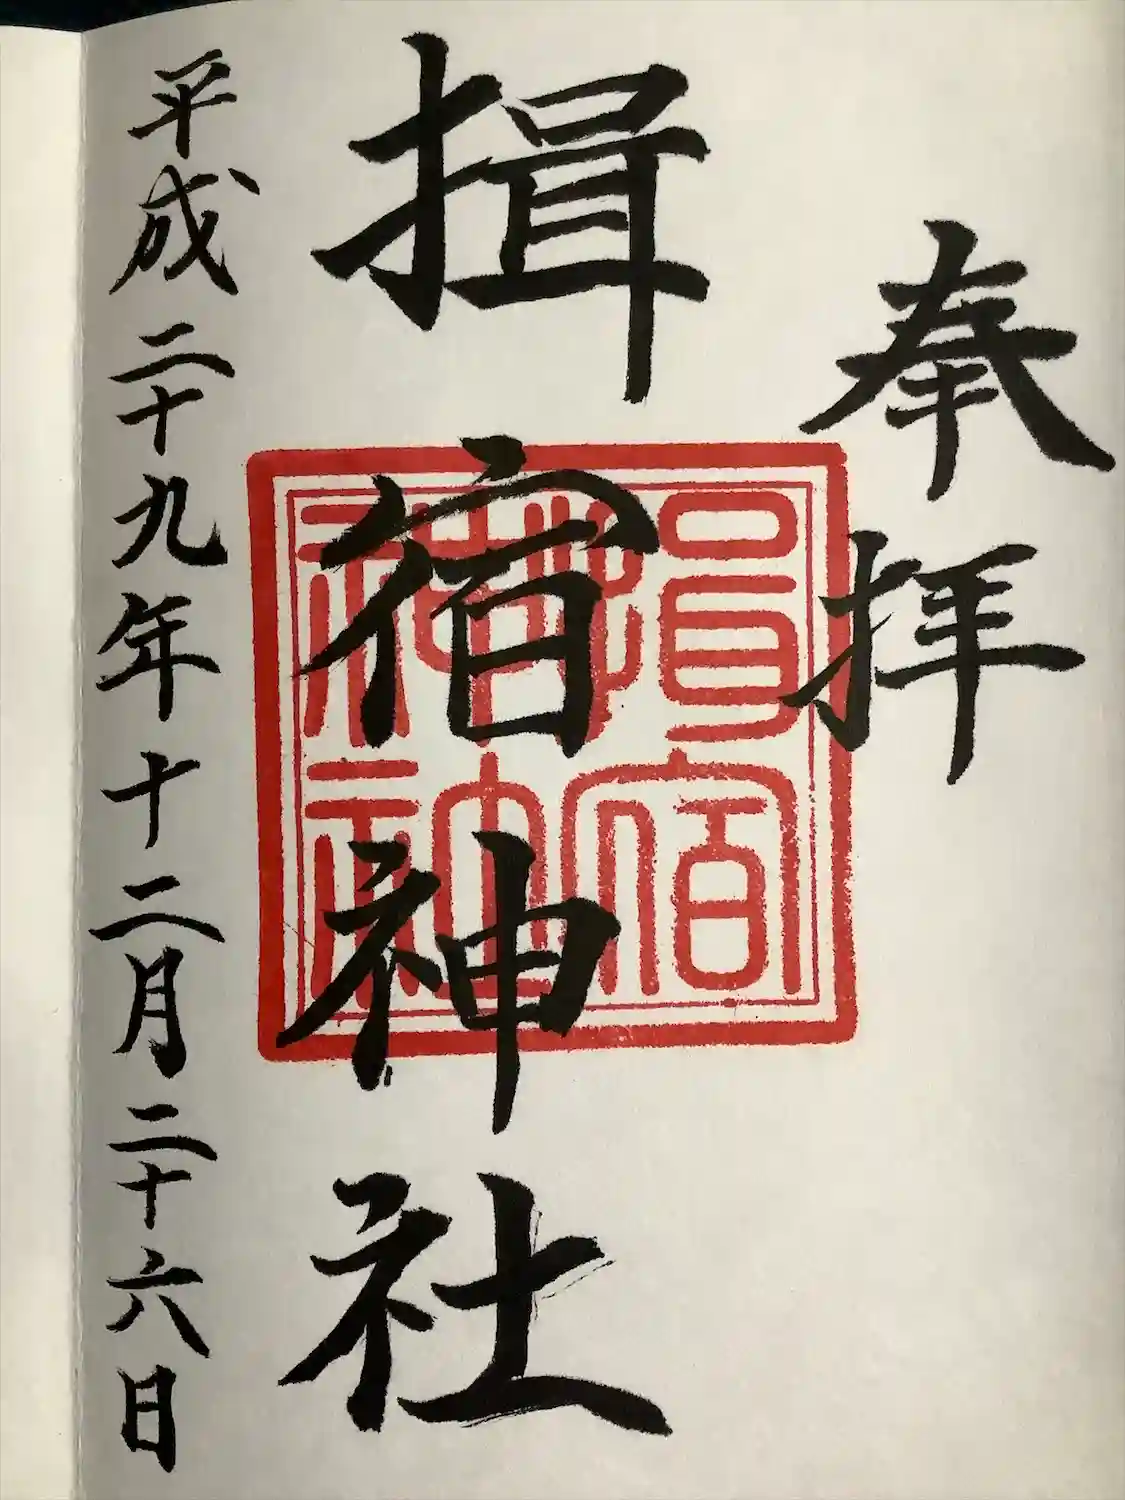 奉拝
揖宿神社
揖宿神社
平成二十九年十二月二十六日